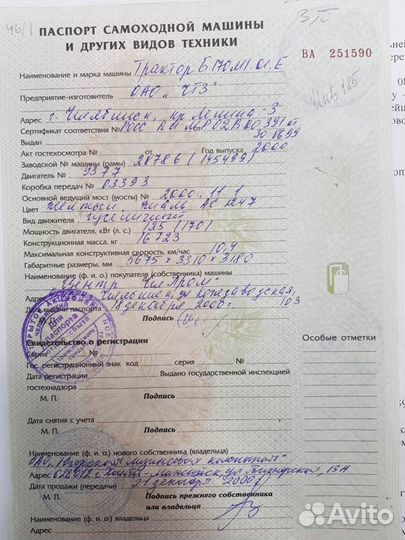 46/1
ПАСПОРТ САМОХОДНОЙ МАШИНЫ
И ДРУГИХ ВИДОВ ТЕХНИКИ
ВА 251590
Наименование и марка машины Трактор Б170М1.01.Е
Предприятие-изготовитель ОАО "ЧТЗ"
Адрес г. Челябинск, пр Ленина-3
Сертификат соответствия №РОСС
Выдан 30 06 99
Акт гостехосмотра № от Год выпуска 2000
Заводской № машины (рамы) 28786 (145499)
Двигатель № 9377
Коробка передач № 03393
Основной ведущий мост (мосты) № 2000. 11. 1
Цвет желтый, эмаль АС 1247
Вид движителя гусеничный
Мощность двигателя, кВт (л. с.) 125 (170)
Конструкционная масса, кг 16723
Максимальная конструктивная скорость, км/час 10,4
Габаритные размеры, мм 5675 х 3310 х 3180
Наименование (ф. и. о.) покупателя (собственника) машины
Центр "ЧилПром"
Адрес г. Челябинск, ул Копездаводская, 103
Дата выдачи паспорта 18 декабря 2000 г
М. П. Подпись
Свидетельство о регистрации
Особые отметки
Серия № от
Гос. регистрационный знак код серия №
Дата регистрации Выдано государственной инспекцией
гостехнадзора
М. П. Подпись
Дата снятия с учета
М. П. Подпись
Наименование (ф. и. о.) нового собственника (владельца)
ОАО "Югорская лизинговая компания"
Адрес Ханты-Мансийск, ул Пионерская 13А
Дата продажи (передачи) 21 декабря 2000 г
Подпись прежнего собственника
М. П. или владельца
Наименование (ф. и. о.) владельца)
Адрес
Avito